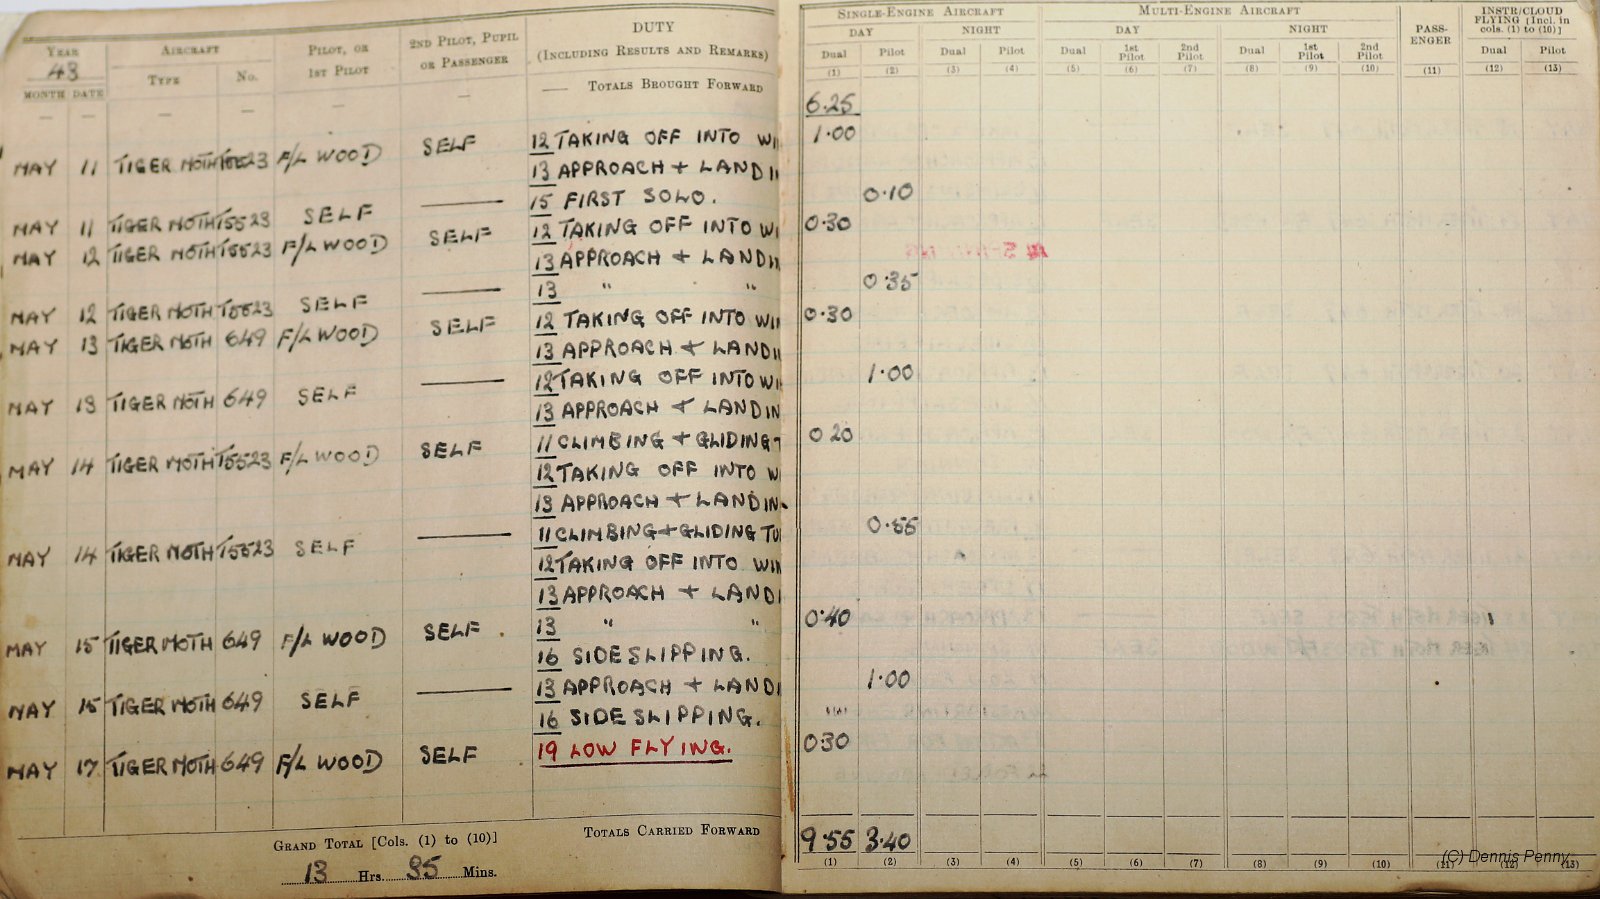 YEAR AIRCRAFT PILOT, OR 1ST PILOT 2ND PILOT, PUPIL OR PASSENGER DUTY (INCLUDING RESULTS AND REMARKS)
43
MONTH DATE TYPE No.
— — — — — — — TOTALS BROUGHT FORWARD
SINGLE-ENGINE AIRCRAFT MULTI-ENGINE AIRCRAFT PASS-ENGER INSTR/CLOUD FLYING [Incl. in cols. (1) to (10)]
DAY NIGHT DAY NIGHT
Dual Pilot Dual Pilot Dual 1st Pilot 2nd Pilot Dual 1st Pilot 2nd Pilot Dual Pilot
(1) (2) (3) (4) (5) (6) (7) (8) (9) (10) (11) (12) (13)
6.25
12 TAKING OFF INTO WI 1.00
MAY 11 TIGER MOTH T5523 F/L WOOD SELF 13 APPROACH + LANDI
MAY 11 TIGER MOTH T5523 SELF — 15 FIRST SOLO. 0.10
MAY 12 TIGER MOTH T5523 F/L WOOD SELF 12 TAKING OFF INTO WI 0.30
13 APPROACH + LANDIN
MAY 12 TIGER MOTH T5523 SELF — 13 " " 0.35
MAY 13 TIGER MOTH 649 F/L WOOD SELF 12 TAKING OFF INTO WIN 0.30
13 APPROACH + LANDIN
MAY 13 TIGER MOTH 649 SELF — 12 TAKING OFF INTO WI 1.00
13 APPROACH + LANDIN
MAY 14 TIGER MOTH T5523 F/L WOOD SELF 11 CLIMBING + GLIDING T 0 20
12 TAKING OFF INTO W
13 APPROACH + LANDIN
MAY 14 TIGER MOTH T5523 SELF — 11 CLIMBING + GLIDING TU 0.55
12 TAKING OFF INTO WIN
13 APPROACH + LANDI
MAY 15 TIGER MOTH 649 F/L WOOD SELF 13 " " 0.40
16 SIDESLIPPING.
MAY 15 TIGER MOTH 649 SELF — 13 APPROACH + LANDI 1.00
16 SIDESLIPPING.
MAY 17 TIGER MOTH 649 F/L WOOD SELF 19 LOW FLYING. 0.30
GRAND TOTAL [Cols. (1) to (10)] TOTALS CARRIED FORWARD 9.55 3.40
13 Hrs. 35 Mins.
(1) (2) (3) (4) (5) (6) (7) (8) (9) (10) (11) (12) (13)
(C) Dennis Penny